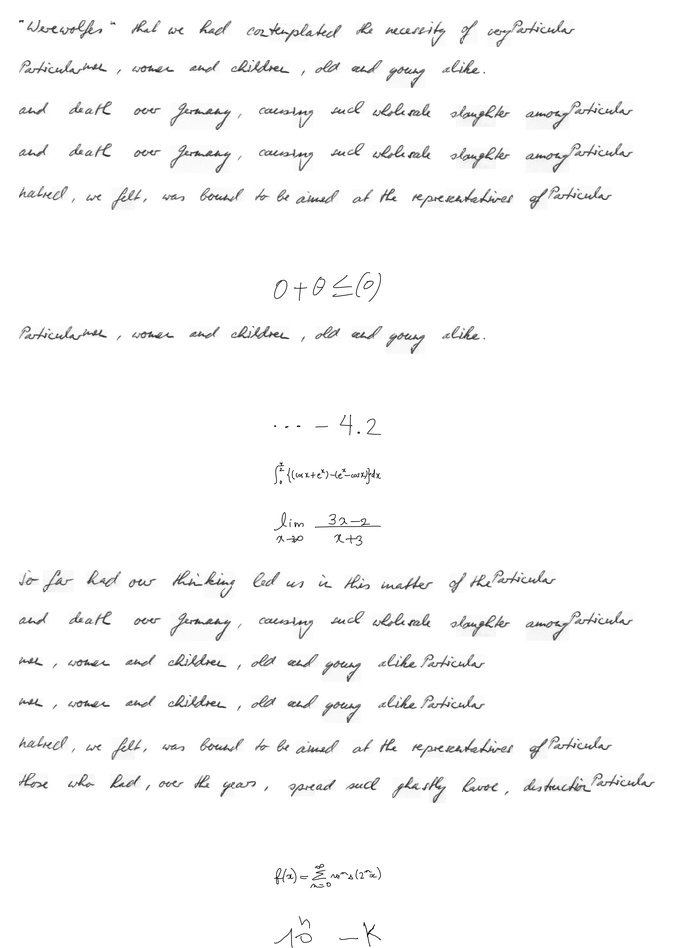 "Werewolfes" that we had contemplated the necessity of very Particular
Particular men, women and children, old and young alike.
and death over Germany, causing such wholesale slaughter among Particular
and death over Germany, causing such wholesale slaughter among Particular
hatred, we felt, was bound to be aimed at the representatives of Particular
0 + θ ≤ (0)
Particular men, women and children, old and young alike.
... - 4.2
∫_0^{π/2} {(cos x + e^x) - (e^x - cos x)} dx
lim_{x→∞} \frac{3x-2}{x+3}
So far had our thinking led us in this matter of the Particular
and death over Germany, causing such wholesale slaughter among Particular
men, women and children, old and young alike Particular
men, women and children, old and young alike Particular
hatred, we felt, was bound to be aimed at the representatives of Particular
those who had, over the years, spread such ghastly havoc, destruction Particular
f(x) = ∑_{n=0}^{∞}
10^n - k